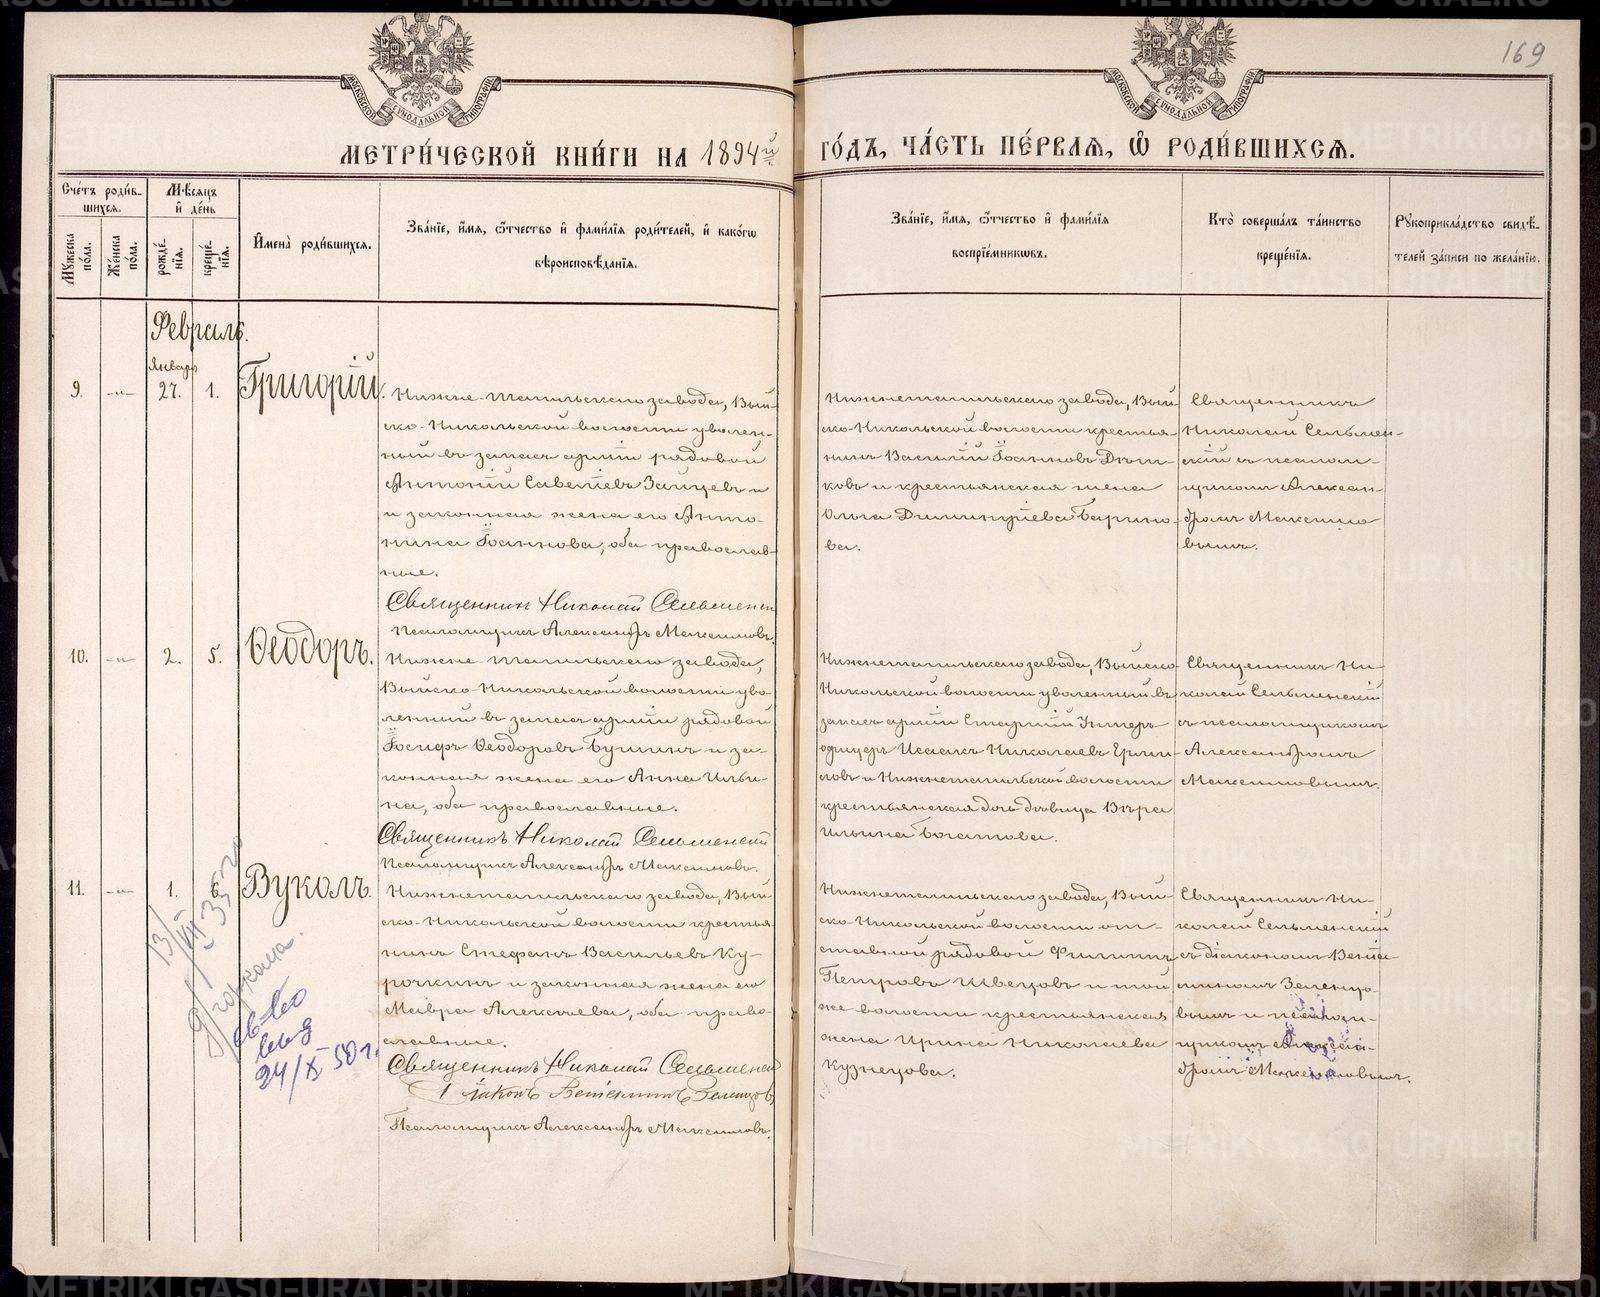 169
МЕТРИ́ЧЕСКОЙ КНИ́ГИ НА 1894й ГО́ДЪ, ЧА́СТЬ ПЕ́РВАЯ, Ѡ РОДИ́ВШИХСЯ.
МОСКОВСКОЙ СѴНОДАЛЬНОЙ ТИПОГРАФІИ
МОСКОВСКОЙ СѴНОДАЛЬНОЙ ТИПОГРАФІИ
Сче́тъ роди́в-
шихся.
Мꙋ́жеска по́ла.
Же́нска по́ла.
Мѣ́сяцъ
и҆ де́нь
рожде́-
нїя.
креще́-
нїя.
И҆мена̀ роди́вшихся.
Зва́нїе, и҆́мя, ѻ҆́тчество и҆ фами́лїя роди́телей, и҆ како́гѡ
вѣроисповѣ́данїя.
Зва́нїе, и҆́мя, ѻ҆́тчество и҆ фами́лїя
воспрїе́мникѡвъ.
Кто̀ соверша́лъ та́инство
креще́нїя.
Рꙋкоприкла́дство свидѣ́-
телей за́писи по жела́нїю.
Февраль.
Январь
9.
-„-
27.
1.
Григорій.
Нижне-Тагильскаго завода, Вый-
ско-Никольской волости уволен-
ный въ запасъ арміи рядовой
Антоній Савеліевъ Зайцевъ и
и законная жена его Анто-
нина Іоаннова, оба православ-
ные.
Священникъ Николай Сельменскій
Псаломщикъ Александръ Максимовъ.
Нижнетагильскаго завода, Вый-
ско-Никольской волости крестья-
нинъ Василій Іоанновъ
ковъ и крестьянская жена
Ольга Димитріева Барино-
ва.
Священникъ
Николай Сельмен-
скій съ псалом-
щикомъ Алексан-
дромъ Максимо
вымъ.
10.
-„-
2.
5.
Ѳеодоръ.
Нижне-Тагильскаго завода,
Выйско-Никольской волости уво-
ленный въ запасъ арміи рядовой
Іосифъ Ѳеодоровъ Бушинъ и за-
конная жена его Анна Ильи-
на, оба православные.
Священникъ Николай Сельменскій
Псаломщикъ Александръ Максимовъ.
Нижнетагильскаго завода, Выйско-
Никольской волости уволенный въ
запасъ арміи Старшій Унтеръ-
офицеръ Исаакъ Николаевъ Ерми-
ловъ и Нижнетагильской волости
крестьянская дочь дѣвица Вѣра
Ильина Богатова.
Священникъ Ни-
колай Сельменскій
съ псаломщикомъ
Александромъ
Максимовымъ.
11.
-„-
1.
6.
Вуколъ.
Нижнетагильскаго завода, Вый-
ско-Никольской волости крестья-
нинъ Стефанъ Васильевъ Ку-
рочкинъ и законная жена его
Мавра Алексѣева, оба право-
славные.
Священникъ Николай Сельменскій
Діаконъ Веніаминъ Зеленцовъ
Псаломщикъ Александръ Максимовъ.
Нижнетагильскаго завода, Вый-
ско-Никольской волости от-
ставной рядовой Филиппъ
Петровъ Швецовъ и той
же волости крестьянская
жена Ирина Николаева
Кузнецова.
Священникъ Ни-
колай Сельменскій
съ діакономъ Веніа-
миномъ Зеленцо-
вымъ и псалом-
щикомъ Алексан-
дромъ Максимовымъ.
13/VII 35 го
д/горкома.
св-во
выд
24/X 50 г.
METRIKI.GASO-URAL.RU